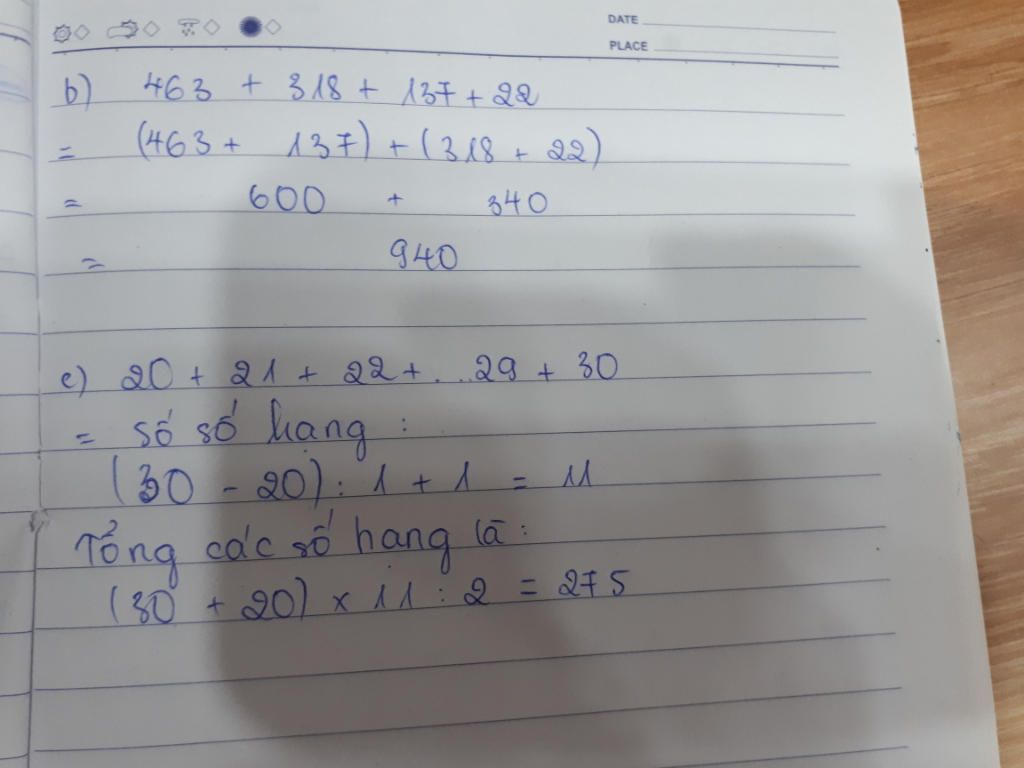 DATE
PLACE
b) 463 + 318 + 137 + 22
= (463 + 137) + (318 + 22)
= 600 + 340
= 940
c) 20 + 21 + 22 + ... 29 + 30
= số số hạng :
(30 - 20) : 1 + 1 = 11
Tổng các số hạng là :
(30 + 20) x 11 : 2 = 275